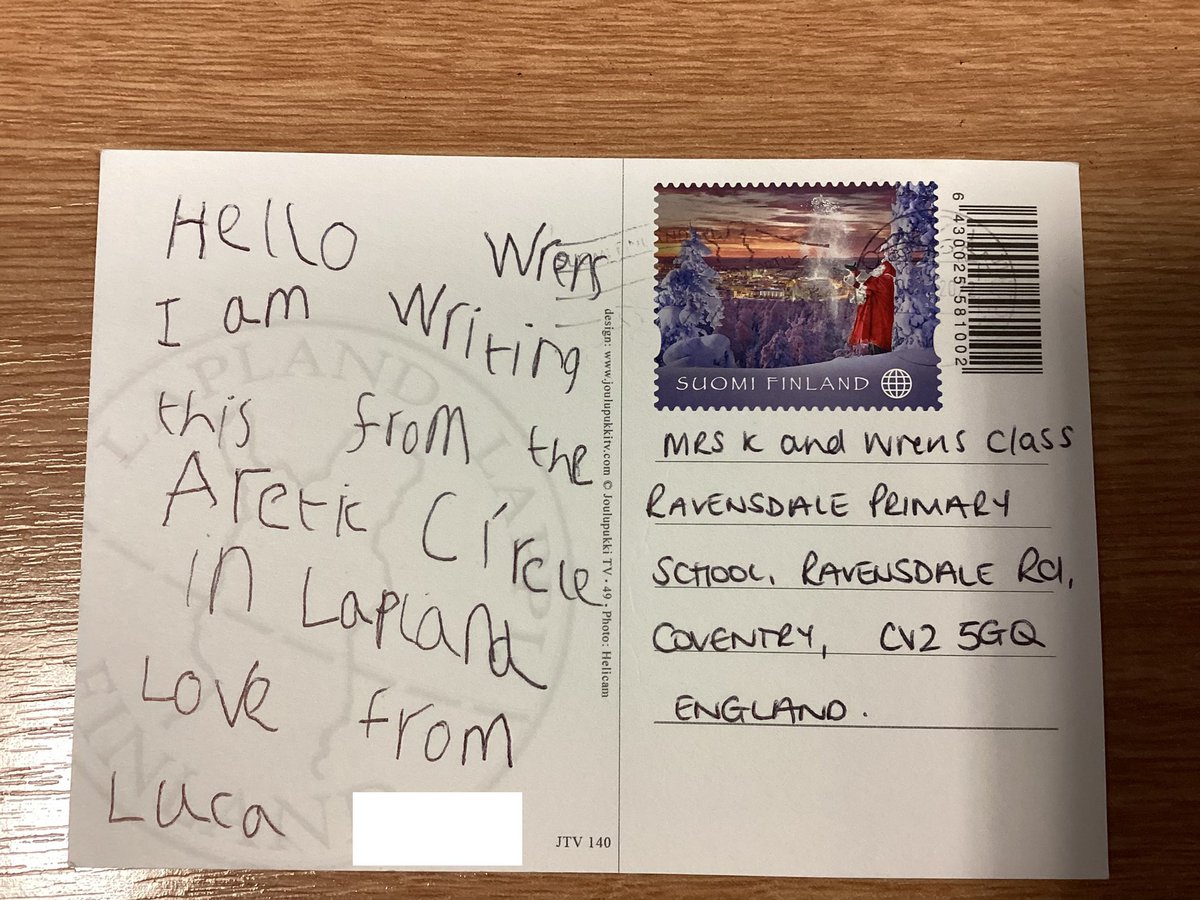 Hello Wrens
I am Writing
this from the
Arctic Circle
in Lapland
Love from
Luca
JTV 140
design: www.joulupukkitv.com © Joulupukki TV - 49 , Photo: Helicam
SUOMI FINLAND
6 430025 581002
MRS K and Wrens Class
RAVENSDALE PRIMARY
SCHOOL, RAVENSDALE Rd,
COVENTRY, CV2 5GQ
ENGLAND.
LAPLAND LAPLAND
FINLAND